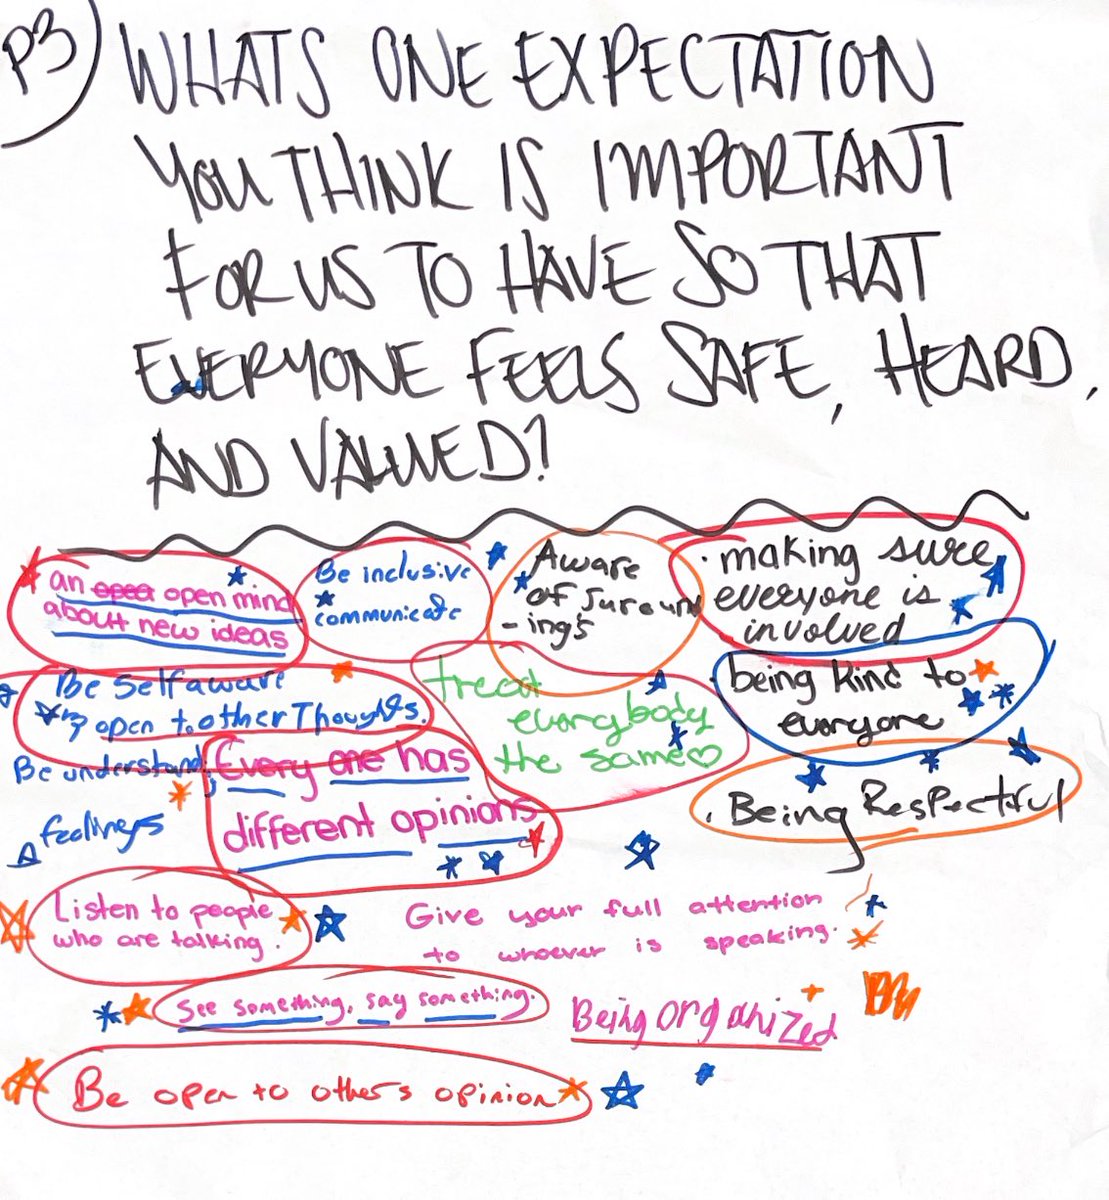 P3)
WHATS ONE EXPECTATION
YOU THINK IS IMPORTANT
FOR US TO HAVE SO THAT
EVERYONE FEELS SAFE, HEARD,
AND VALUED?
an open mind
about new ideas
Be inclusive
communicate
Aware
of suround
-ing's
· making sure
everyone is
involved
Be Self aware
open to other Thoughts.
treat
everybody
the same ♡
being kind to
everyone
Be understand
feelings
Every one has
different opinions
· Being Respectful
Listen to people
who are talking.
Give your full attention
to whoever is speaking.
see something, say something.
Being organized
Be open to other's opinion